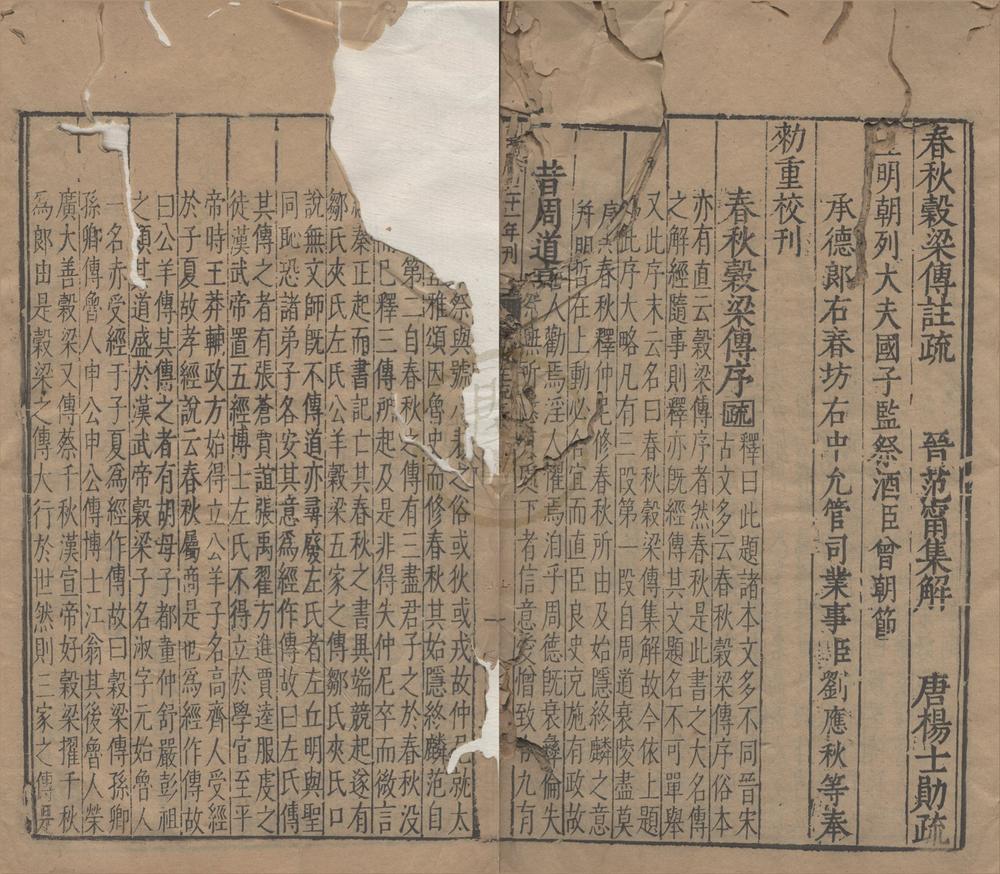 春秋穀梁傳註疏 晉范甯集解 唐楊士勛疏
明朝列大夫國子監祭酒臣曾朝節
承德郎右春坊右中允管司業事臣劉應秋等奉
勑重校刊
春秋穀梁傳序 疏 釋曰此題諸本文多不同晉宋
古文多云春秋穀梁傳序俗本
亦有直云穀梁傳序者然春秋是此書之大名傳
之解經隨事則釋亦既經傳其文題名不可單舉
又此序末云名曰春秋穀梁傳集解故今依上題
此序大略凡有三段第一段自周道衰陵盡莫
春秋釋仲尼修春秋所由及始隱終麟之意
哲在上動必合宜而直臣良史克施有政故
人勸焉淫人懼焉洎乎周德既衰彝倫失
無所 下者信意愛憎致令九有
昔周道衰
年刊
祭與號 之俗或狄或戎故仲尼就太
雅頌因魯史而修春秋其始隱終麟范自
第二自春秋之傳有三盡君子之於春秋沒
已釋三傳所起及是非得失仲尼卒而微言
秦正起而書記亡其春秋之書異端競起遂有
鄒氏夾氏左氏公羊穀梁五家之傳鄒氏夾氏口
說無文師既不傳道亦尋廢左氏者左丘明與聖
同恥恐諸弟子各安其意為經作傳故曰左氏傳
其傳之者有張蒼賈誼張禹翟方進賈逵服虔之
徒漢武帝置五經博士左氏不得立於學官至平
帝時王莽輔政方始得立公羊子名高齊人受經
於子夏故孝經說云春秋屬商是也為經作傳故
曰公羊傳其傳之者有胡母子都董仲舒嚴彭祖
之類其道盛於漢武帝穀梁子名淑字元始魯人
一名赤受經于子夏為經作傳故曰穀梁傳孫卿
孫卿傳魯人申公申公傳博士江翁其後魯人榮
廣大善穀梁又傳蔡千秋漢宣帝好穀梁擢千秋
為郎由是穀梁之傳大行於世然則三家之傳是